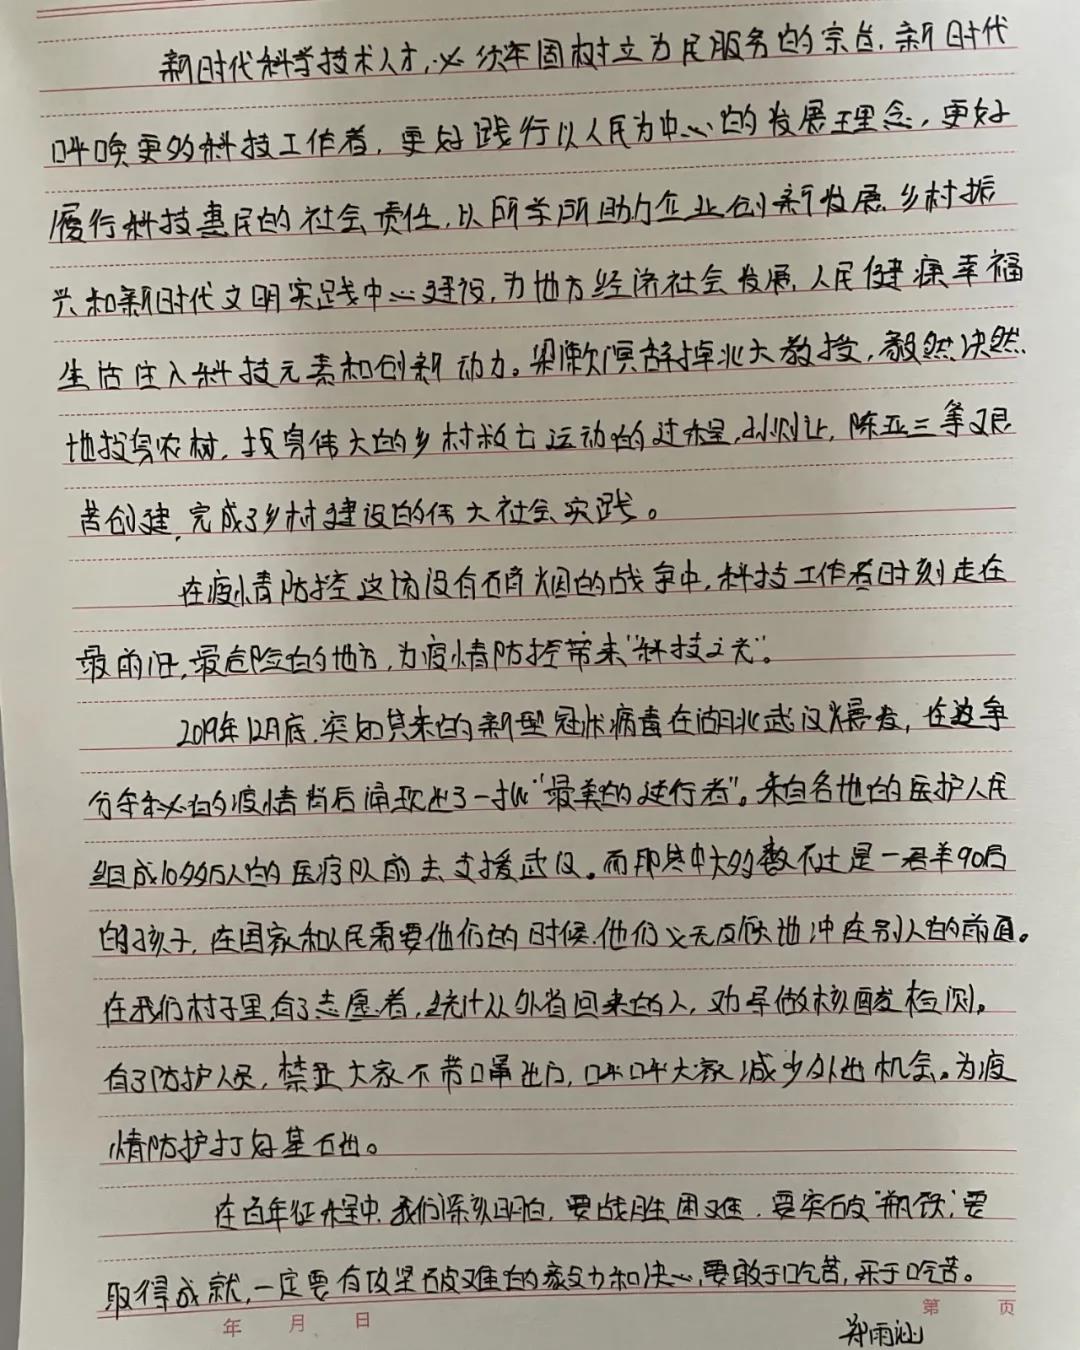 新时代科学技术人才,必须牢固树立为民服务的宗旨,新时代
呼唤更多科技工作者,更好践行以人民为中心的发展理念,更好
履行科技惠民的社会责任,以所学所助力企业创新发展,乡村振
兴和新时代文明实践中心建设,为地方经济社会发展,人民健康幸福
生活注入科技元素和创新动力。梁漱溟辞掉北大教授,毅然决然
地投身农村,投身伟大的乡村救亡运动的过程,孙则让,陈亚三等艰
苦创建,完成了乡村建设的伟大社会实践。
在疫情防控这场没有硝烟的战争中,科技工作者时刻走在
最前沿,最危险的地方,为疫情防控带来“科技之光”。
2019年12月底,突如其来的新型冠状病毒在湖北武汉爆发,在这争
分夺秒的疫情背后涌现出了一批“最美的逆行者”。来自各地的医护人民
组成10多万人的医疗队前去支援武汉。而那其中大多数不过是一君羊90后
的孩子,在国家和人民需要他们的时候,他们义无反顾地冲在别人的前面。
在我们村子里,有了志愿者,统计从外省回来的人,劝导做核酸检测。
有了防护人员,禁止大家不带口罩出门,呼吁大家减少外出机会。为疫
情防护打好基石出。
在百年征程中,我们深刻明白,要战胜困难,要突破“瓶颈”,要
取得成就,一定要有攻坚破难的毅力和决心,要敢于吃苦,乐于吃苦。
年 月 日
第 页
郑雨